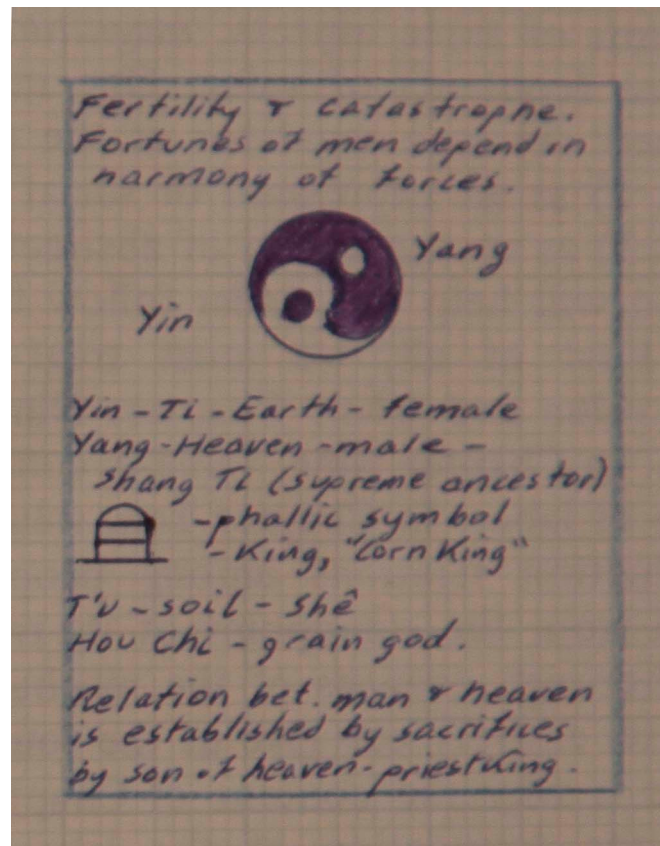 Fertility & catastrophe.
Fortunes of men depend in
harmony of forces.
Yang
Yin
Yin - Ti - Earth - female
Yang - Heaven - male -
Shang Ti (supreme ancestor)
- phallic symbol
- King, "Corn King"
T'u - soil - Shê
Hou Chi - grain god.
Relation bet. man & heaven
is established by sacrifices
by son of heaven - priestking.